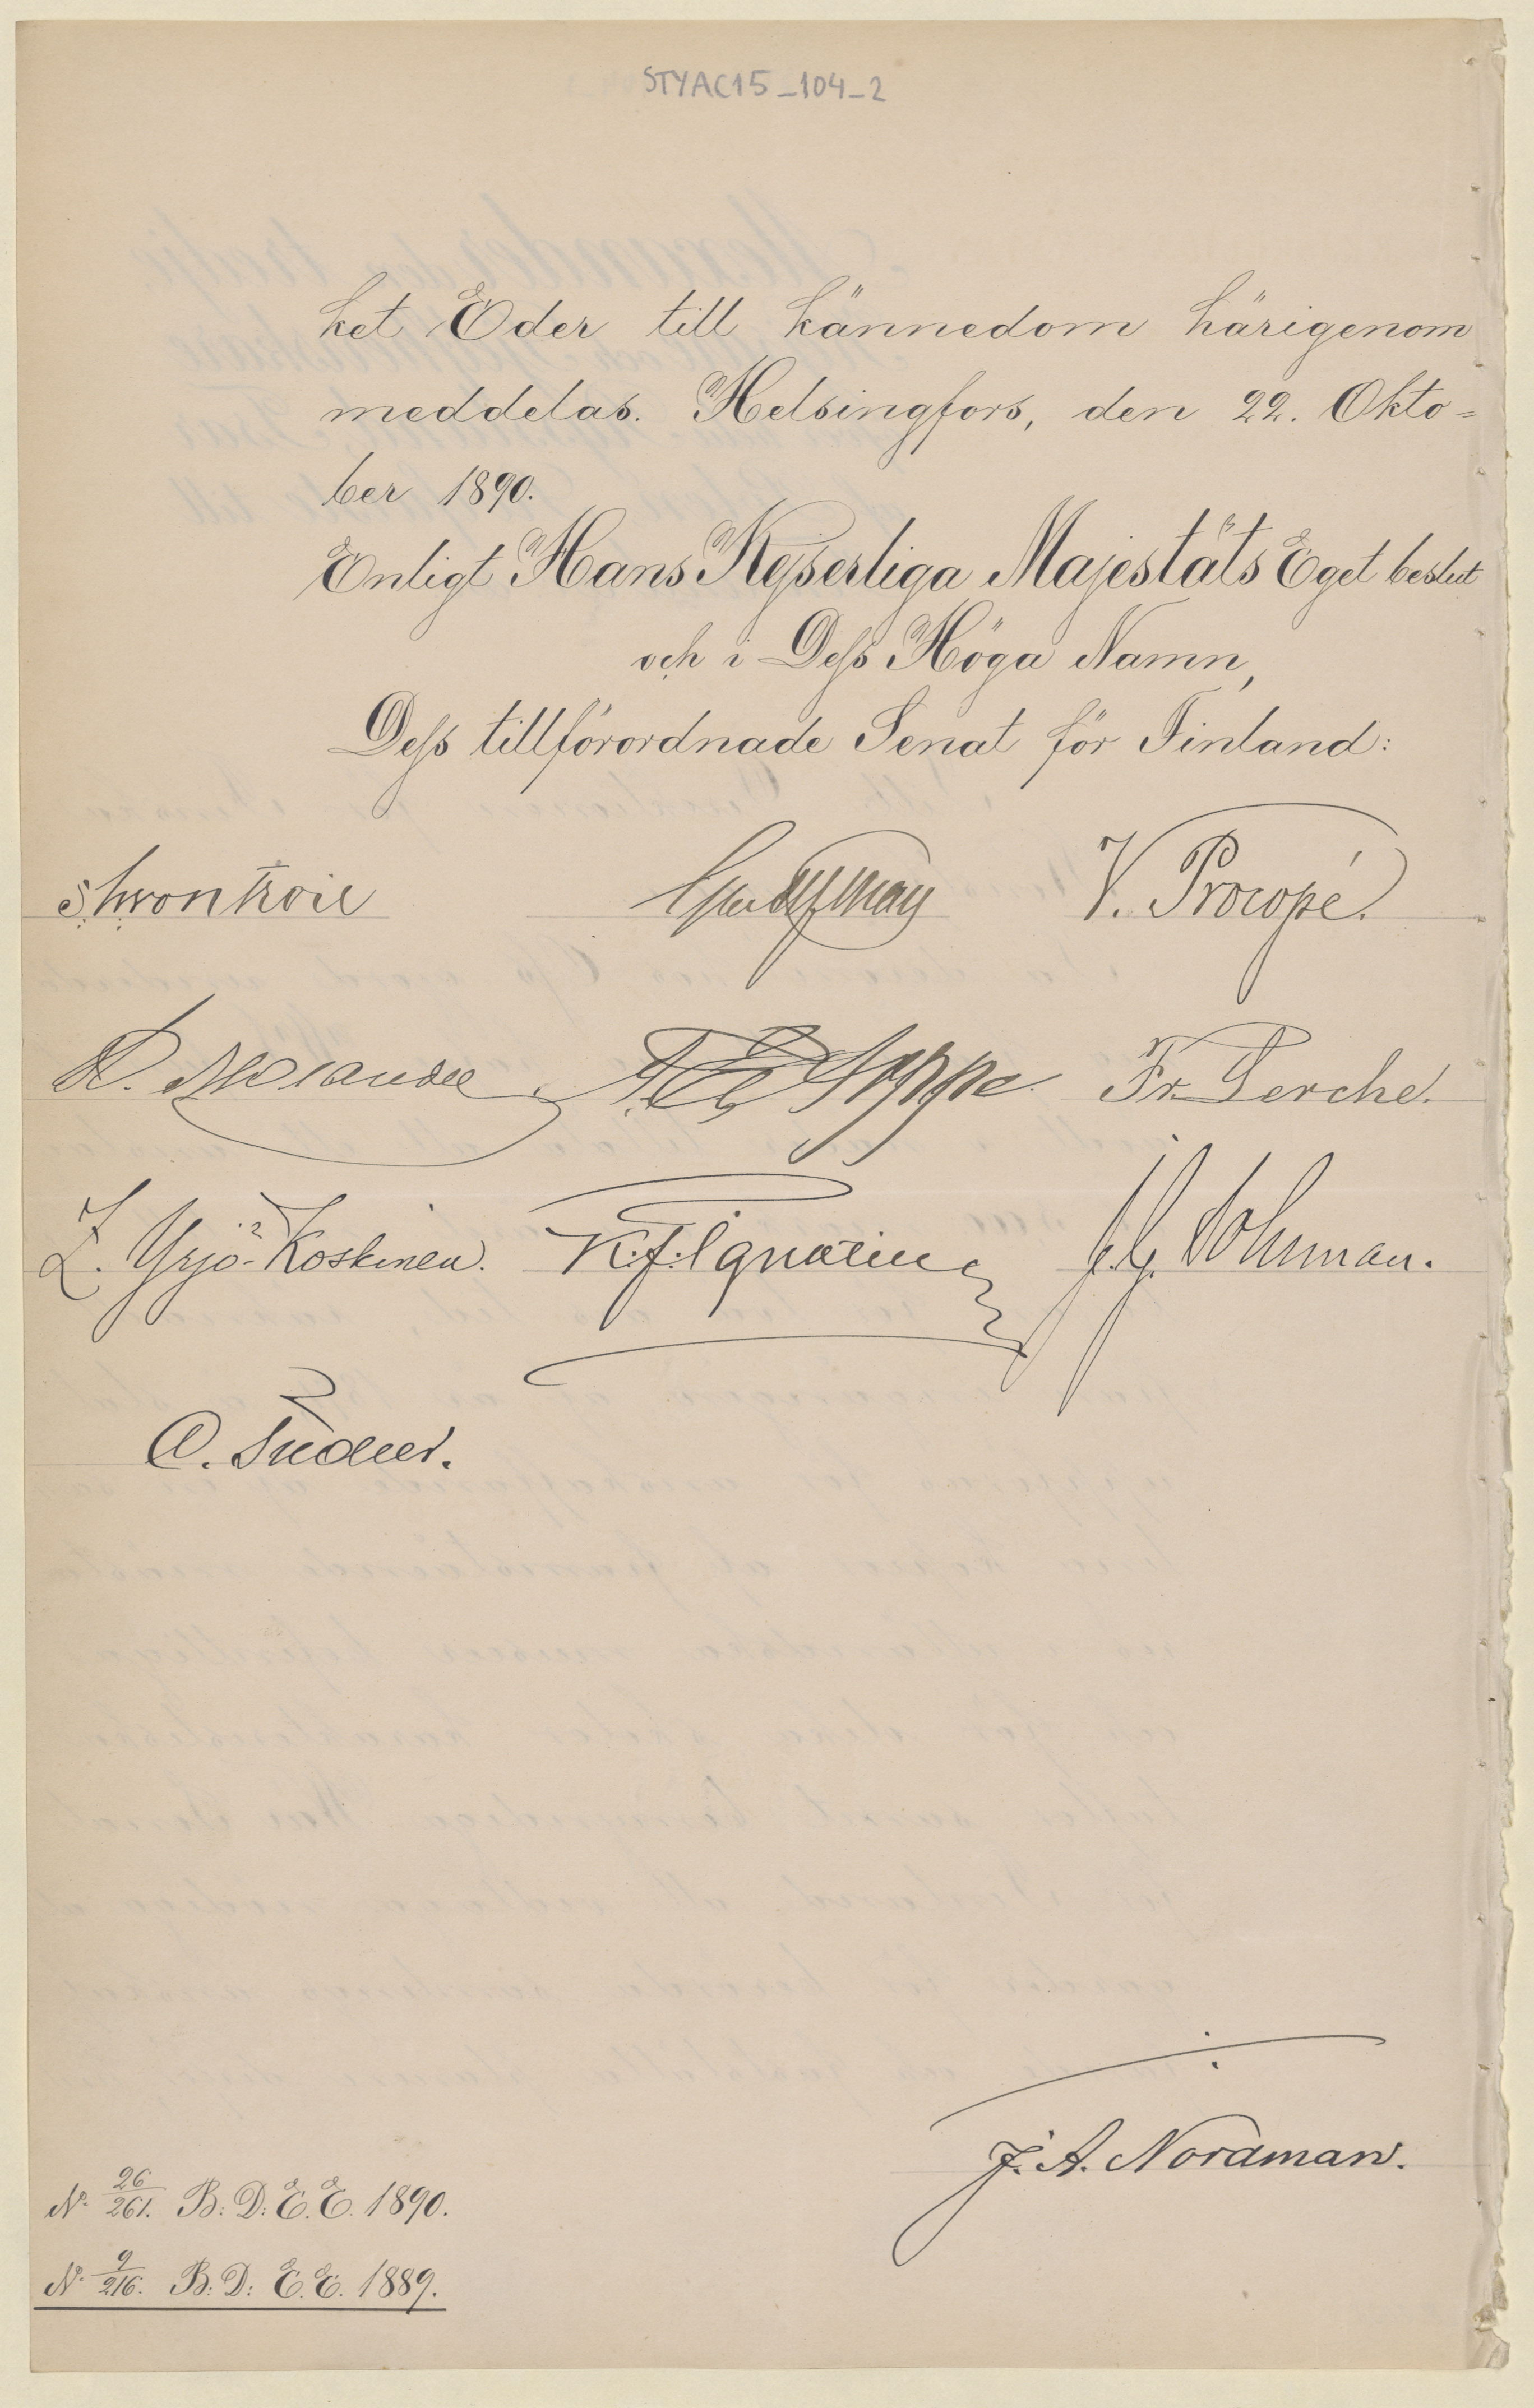 STYAC15_104_2
ket Eder till kännedom härigenom
meddelas. Helsingfors, den 22. Okto=
ber 1890.
Enligt Hans Kejserliga Majestäts Eget beslut
och i Dess Höga Namn,
Dess tillförordnade Senat för Finland:
S W von Troil
V. Procopé.
Fr. Perche.
Z. Yrjö-Koskinen. K. F. Ignatius J. G. Sohlman.
C. Tudeer.
J. A. Nordman.
N. 26/261. B: D: E. E. 1890.
N. 9/216. B: D: E. E. 1889.